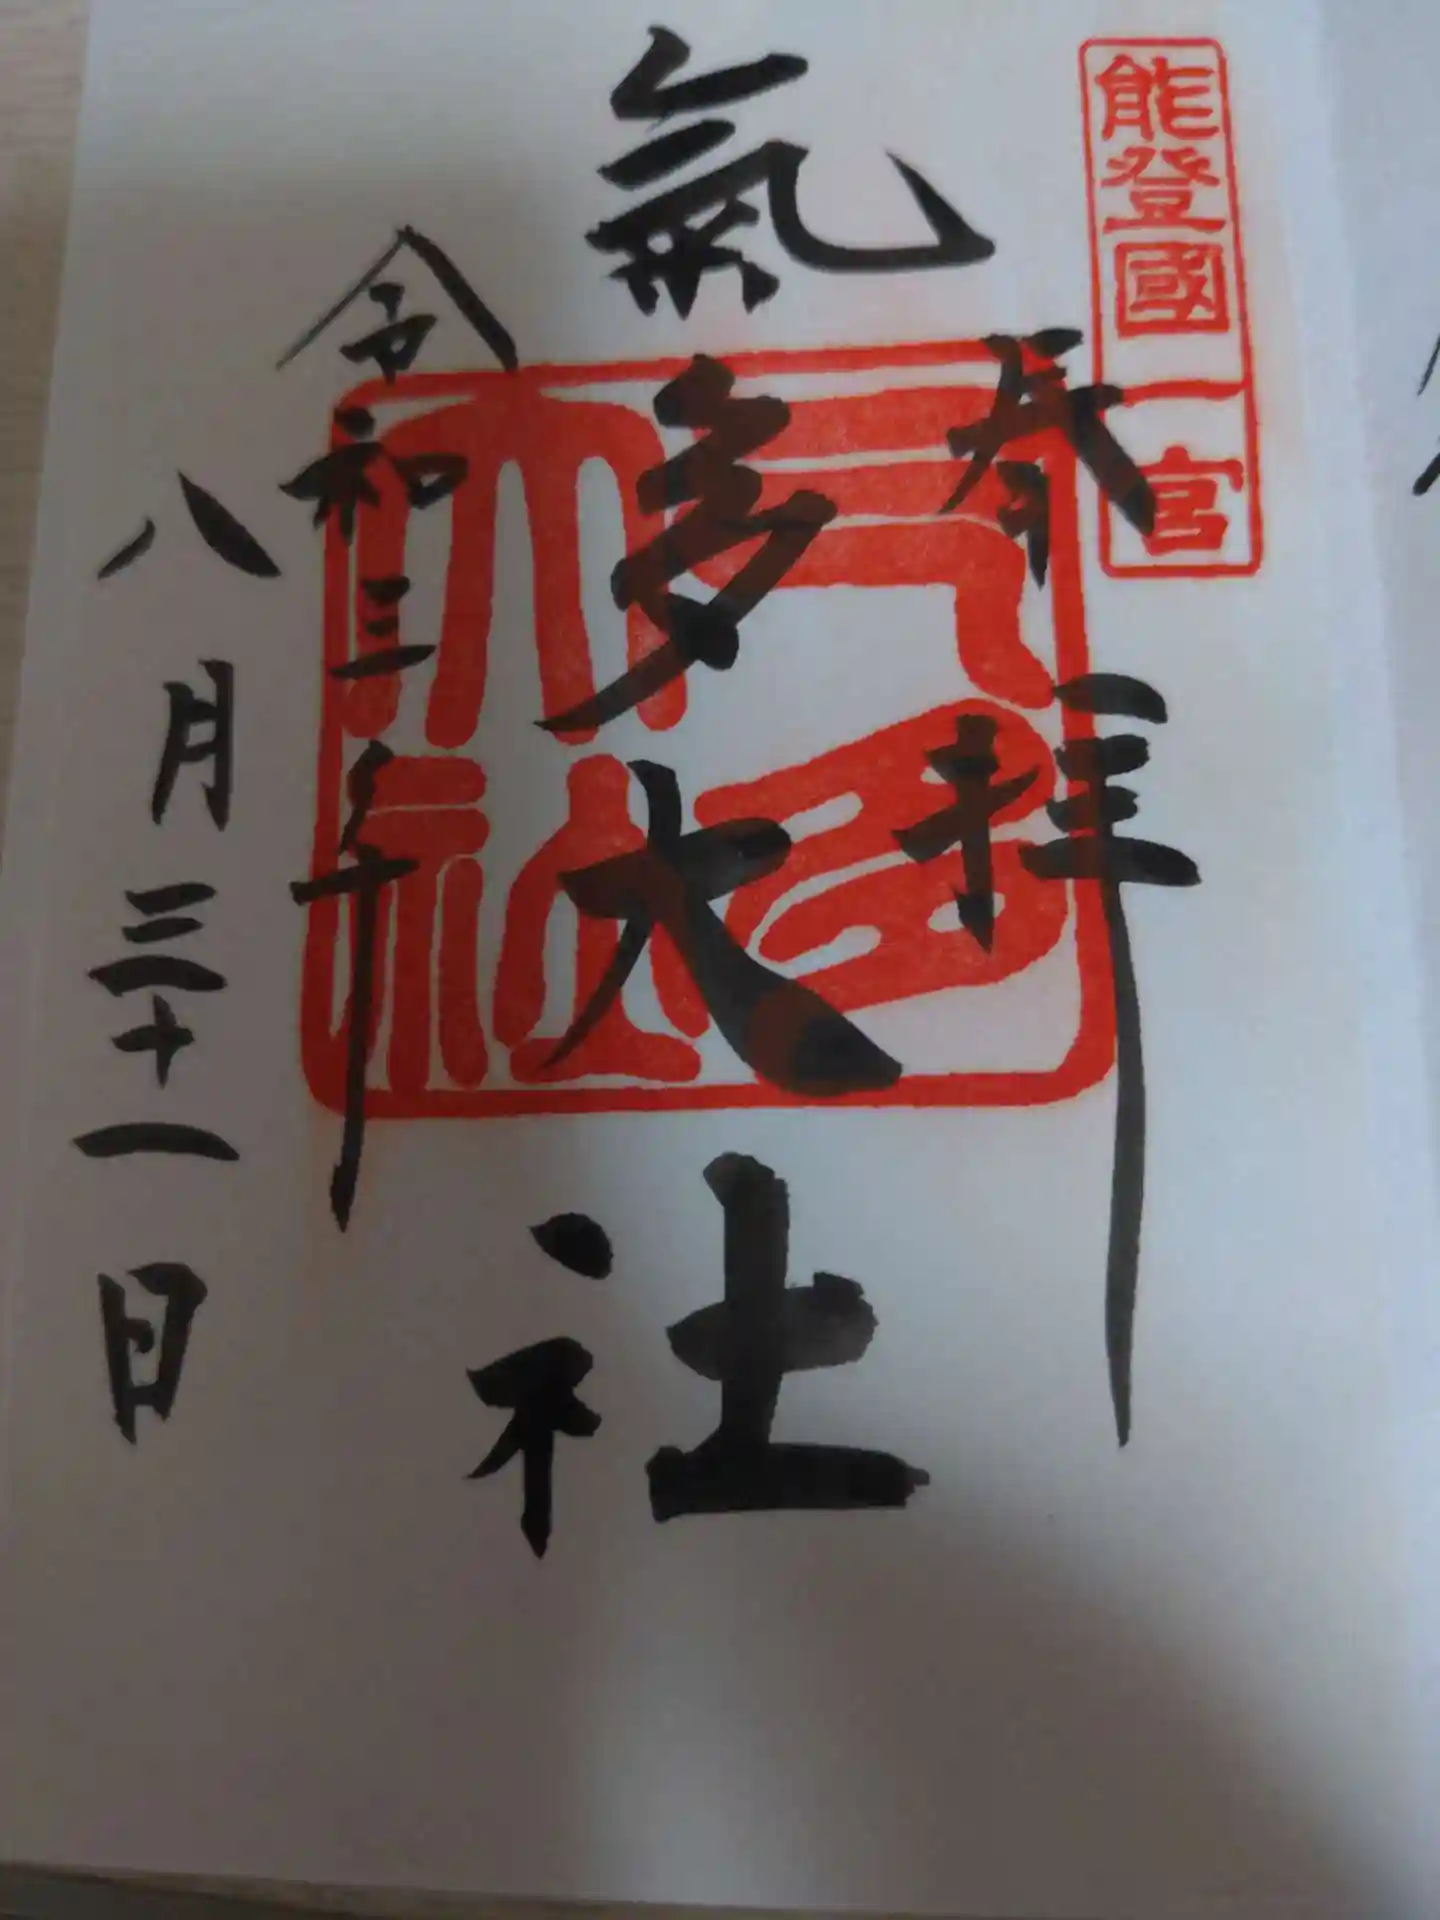 能登國一宮
奉拝
氣多大社
气多大社
令和三年
八月三十一日